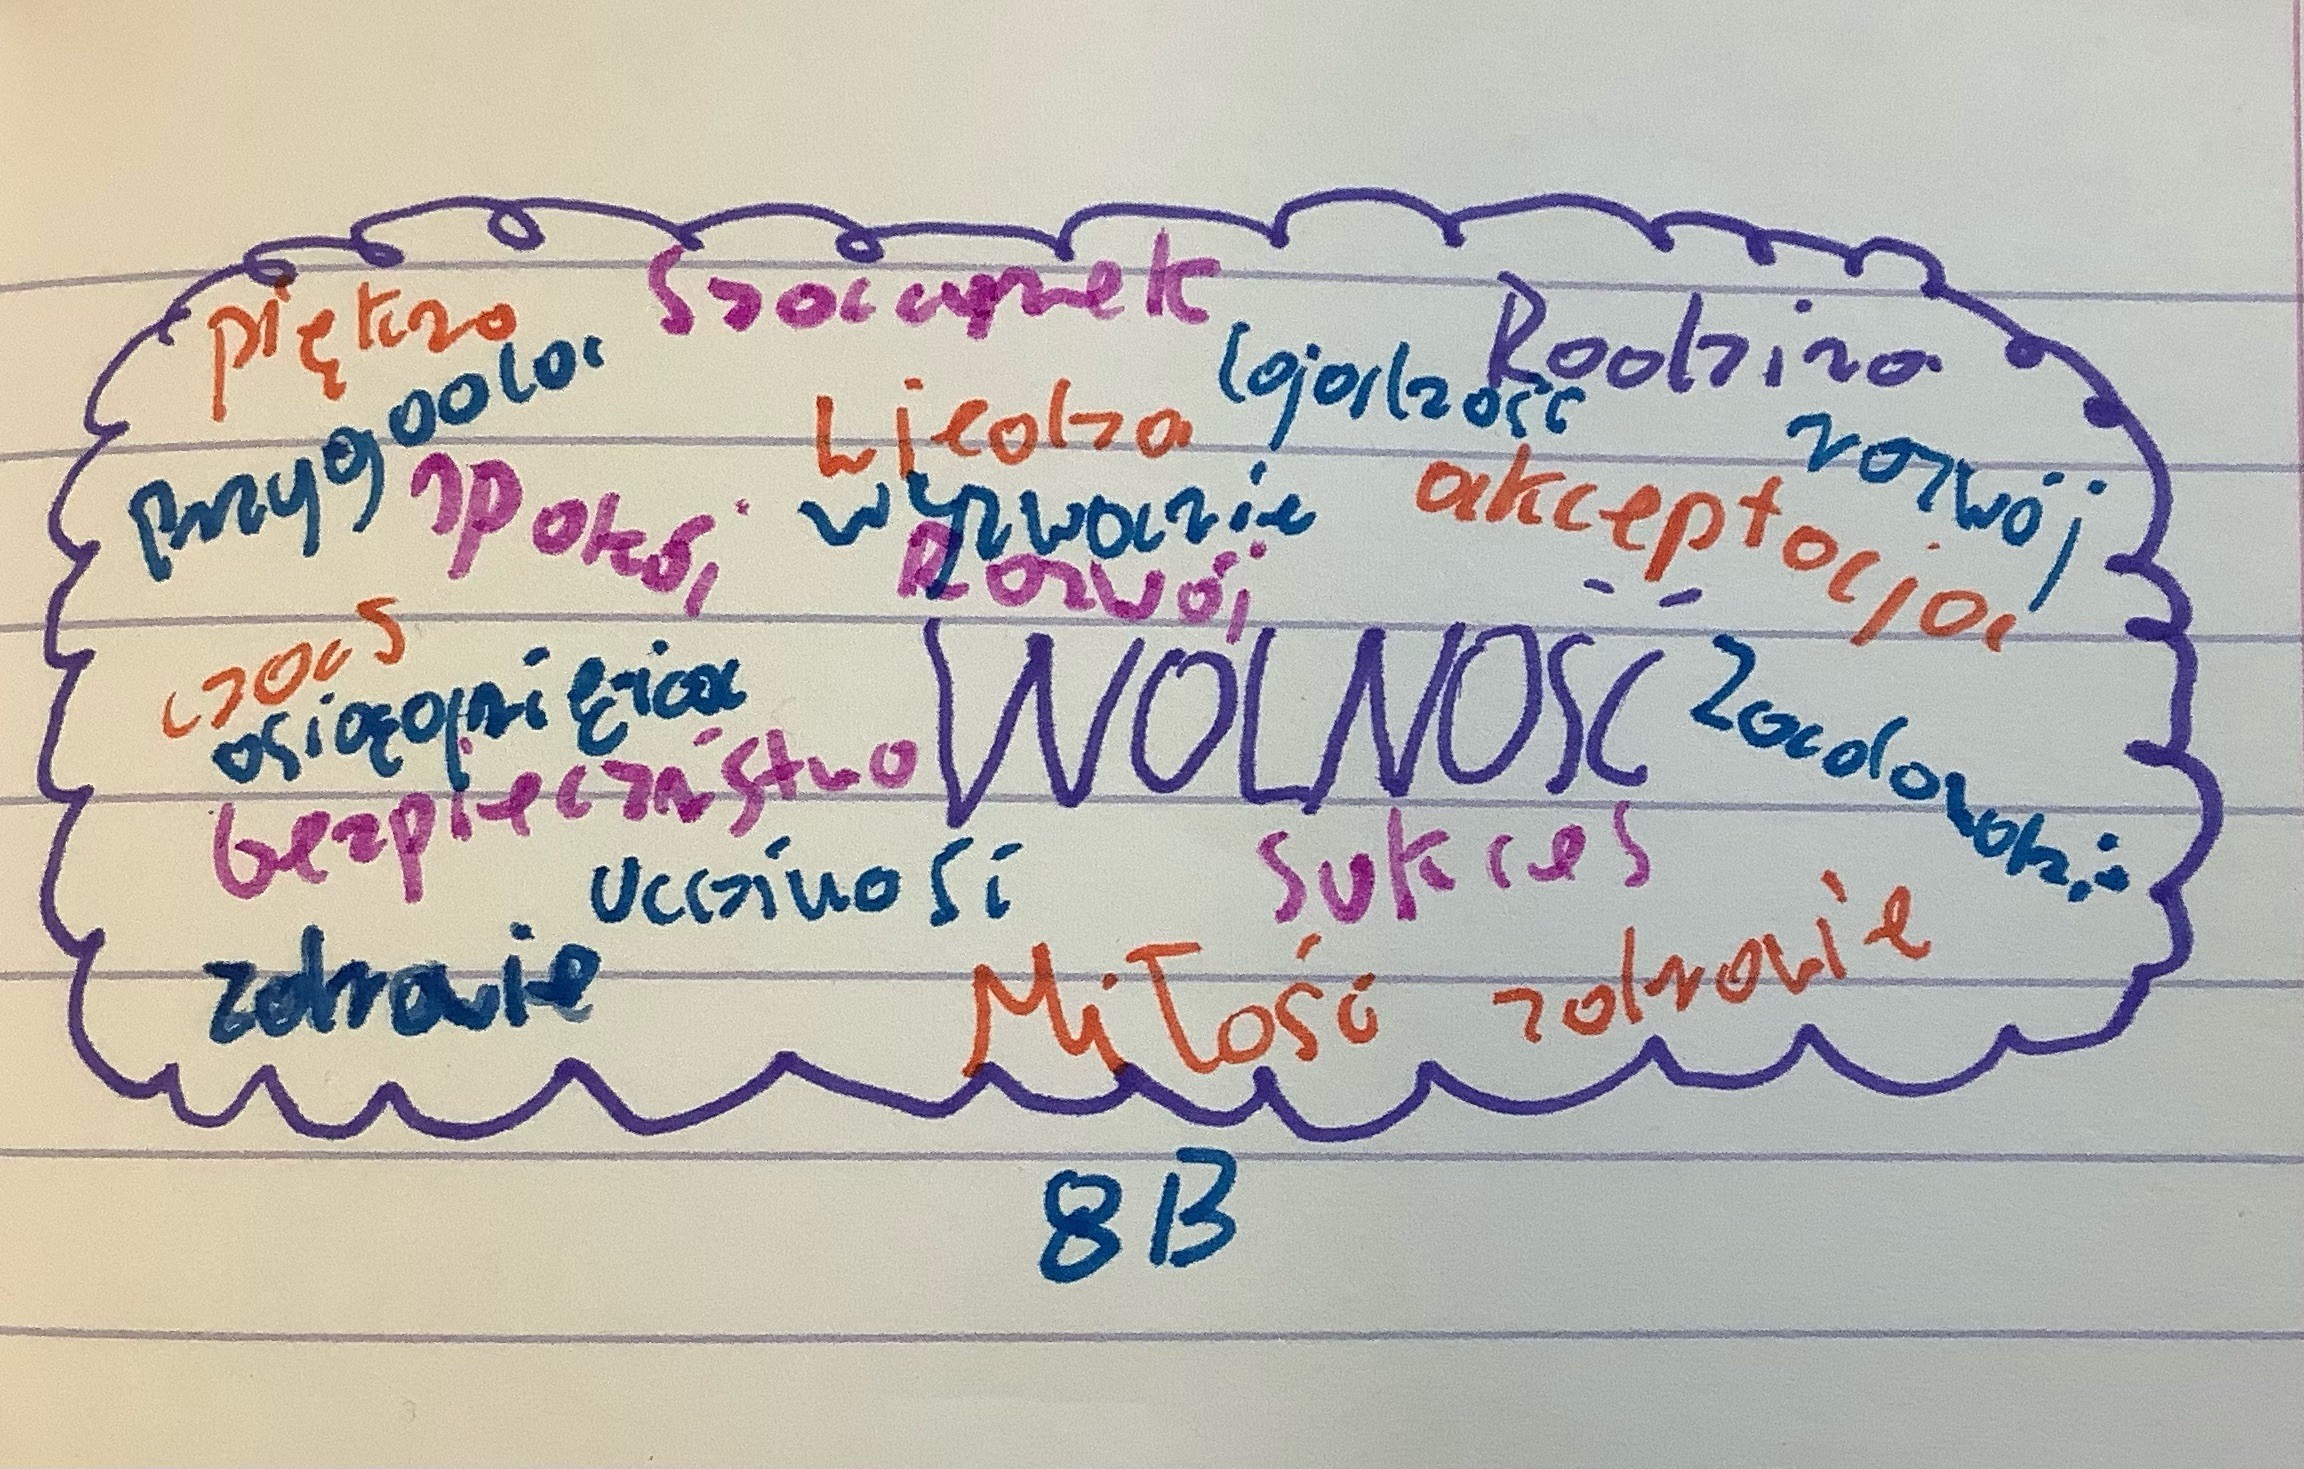 piękno
Szacunek
Rodzina
lojalność
przygoda
Wiedza
rozwój
spokój
wyzwanie
akceptacja
Rozwój
czas
osiągnięcia
WOLNOŚĆ
bezpieczeństwo
uczciwość
Sukces
zdrowie
Miłość
zdrowie
8B